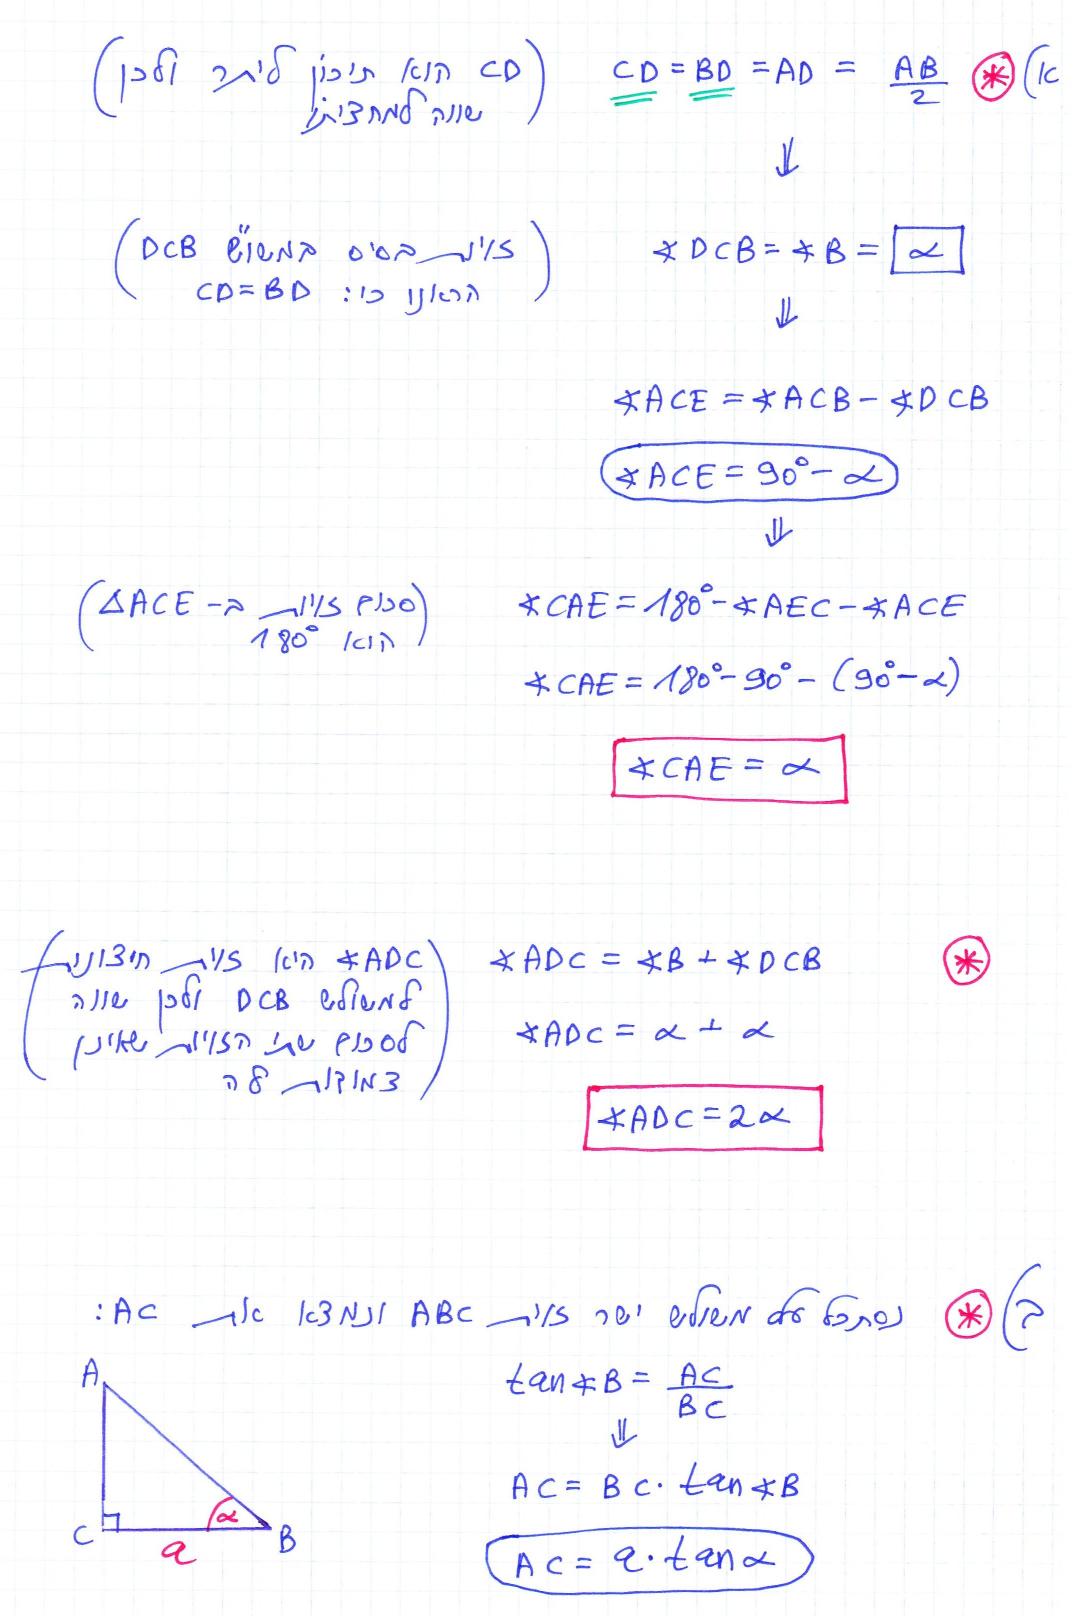 א) * CD = BD = AD = AB/2
(CD הוא תיכון ליתר ולכן
שווה למחציתו)
⇓
∢DCB = ∢B = α
(זוית בסיס במשו"ש DCB
הראנו כי: CD=BD)
⇓
∢ACE = ∢ACB - ∢DCB
∢ACE = 90° - α
⇓
∢CAE = 180° - ∢AEC - ∢ACE
(סכום זוית ב- ΔACE
הוא 180°)
∢CAE = 180° - 90° - (90° - α)
∢CAE = α
* ∢ADC = ∢B + ∢DCB
(∢ADC היא זוית חיצונית
למשולש DCB ולכן שווה
לסכום שתי הזויות שאינן
צמודות לה)
∢ADC = α + α
∢ADC = 2α
ב) * נסתכל על משולש ישר זוית ABC ונמצא את AC:
tan∢B = AC/BC
⇓
AC = BC · tan∢B
AC = a · tanα
A
C
B
α
a